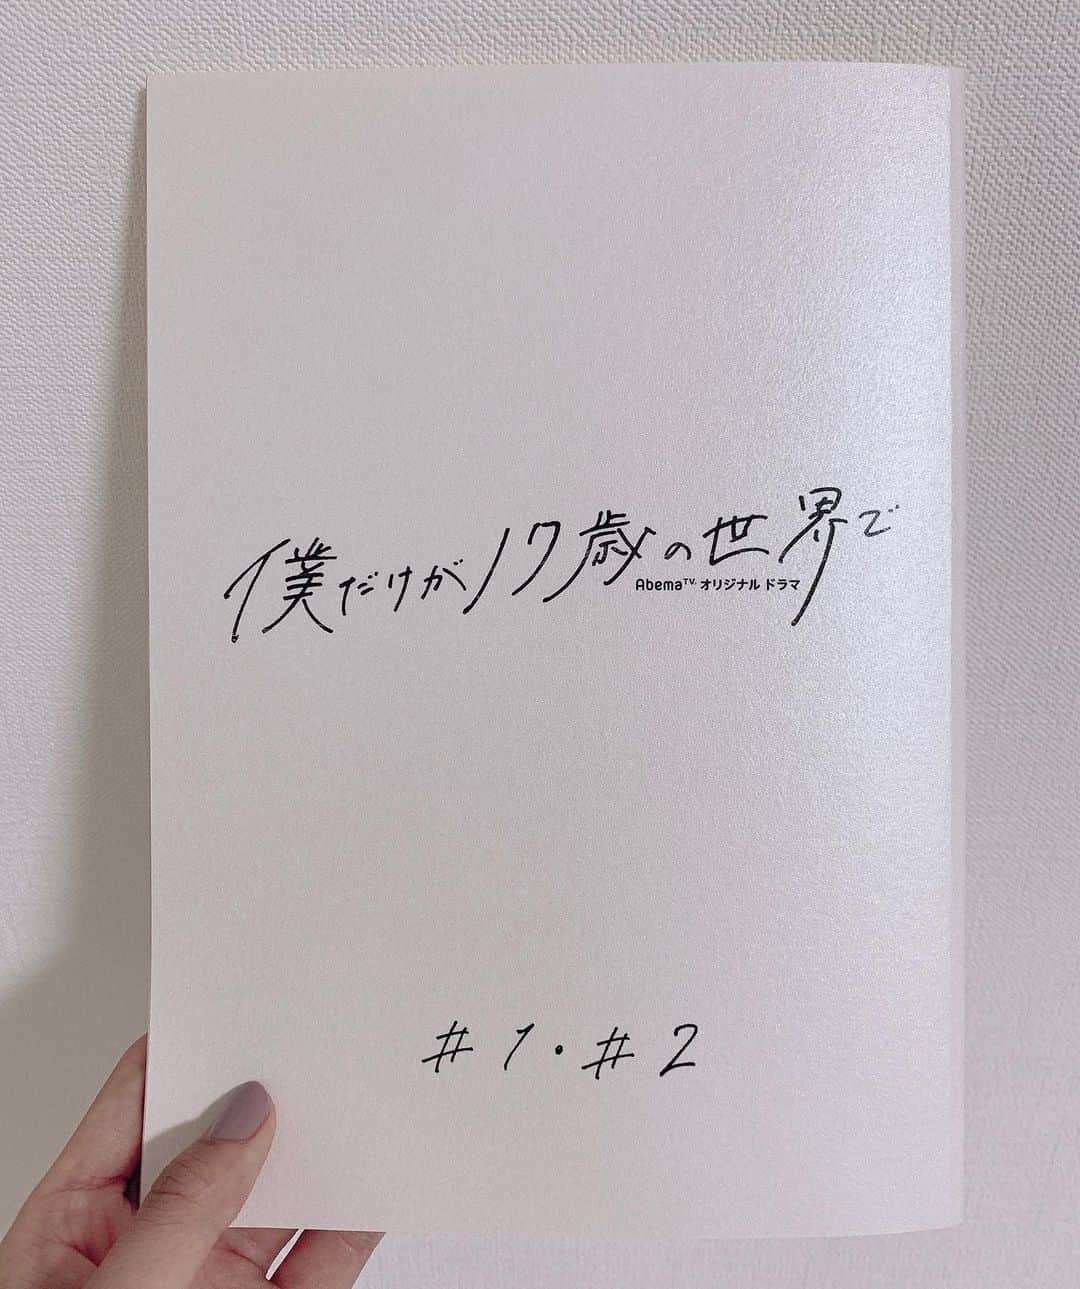 僕だけが17歳の世界で
AbemaTV. オリジナル ドラマ
#1・#2